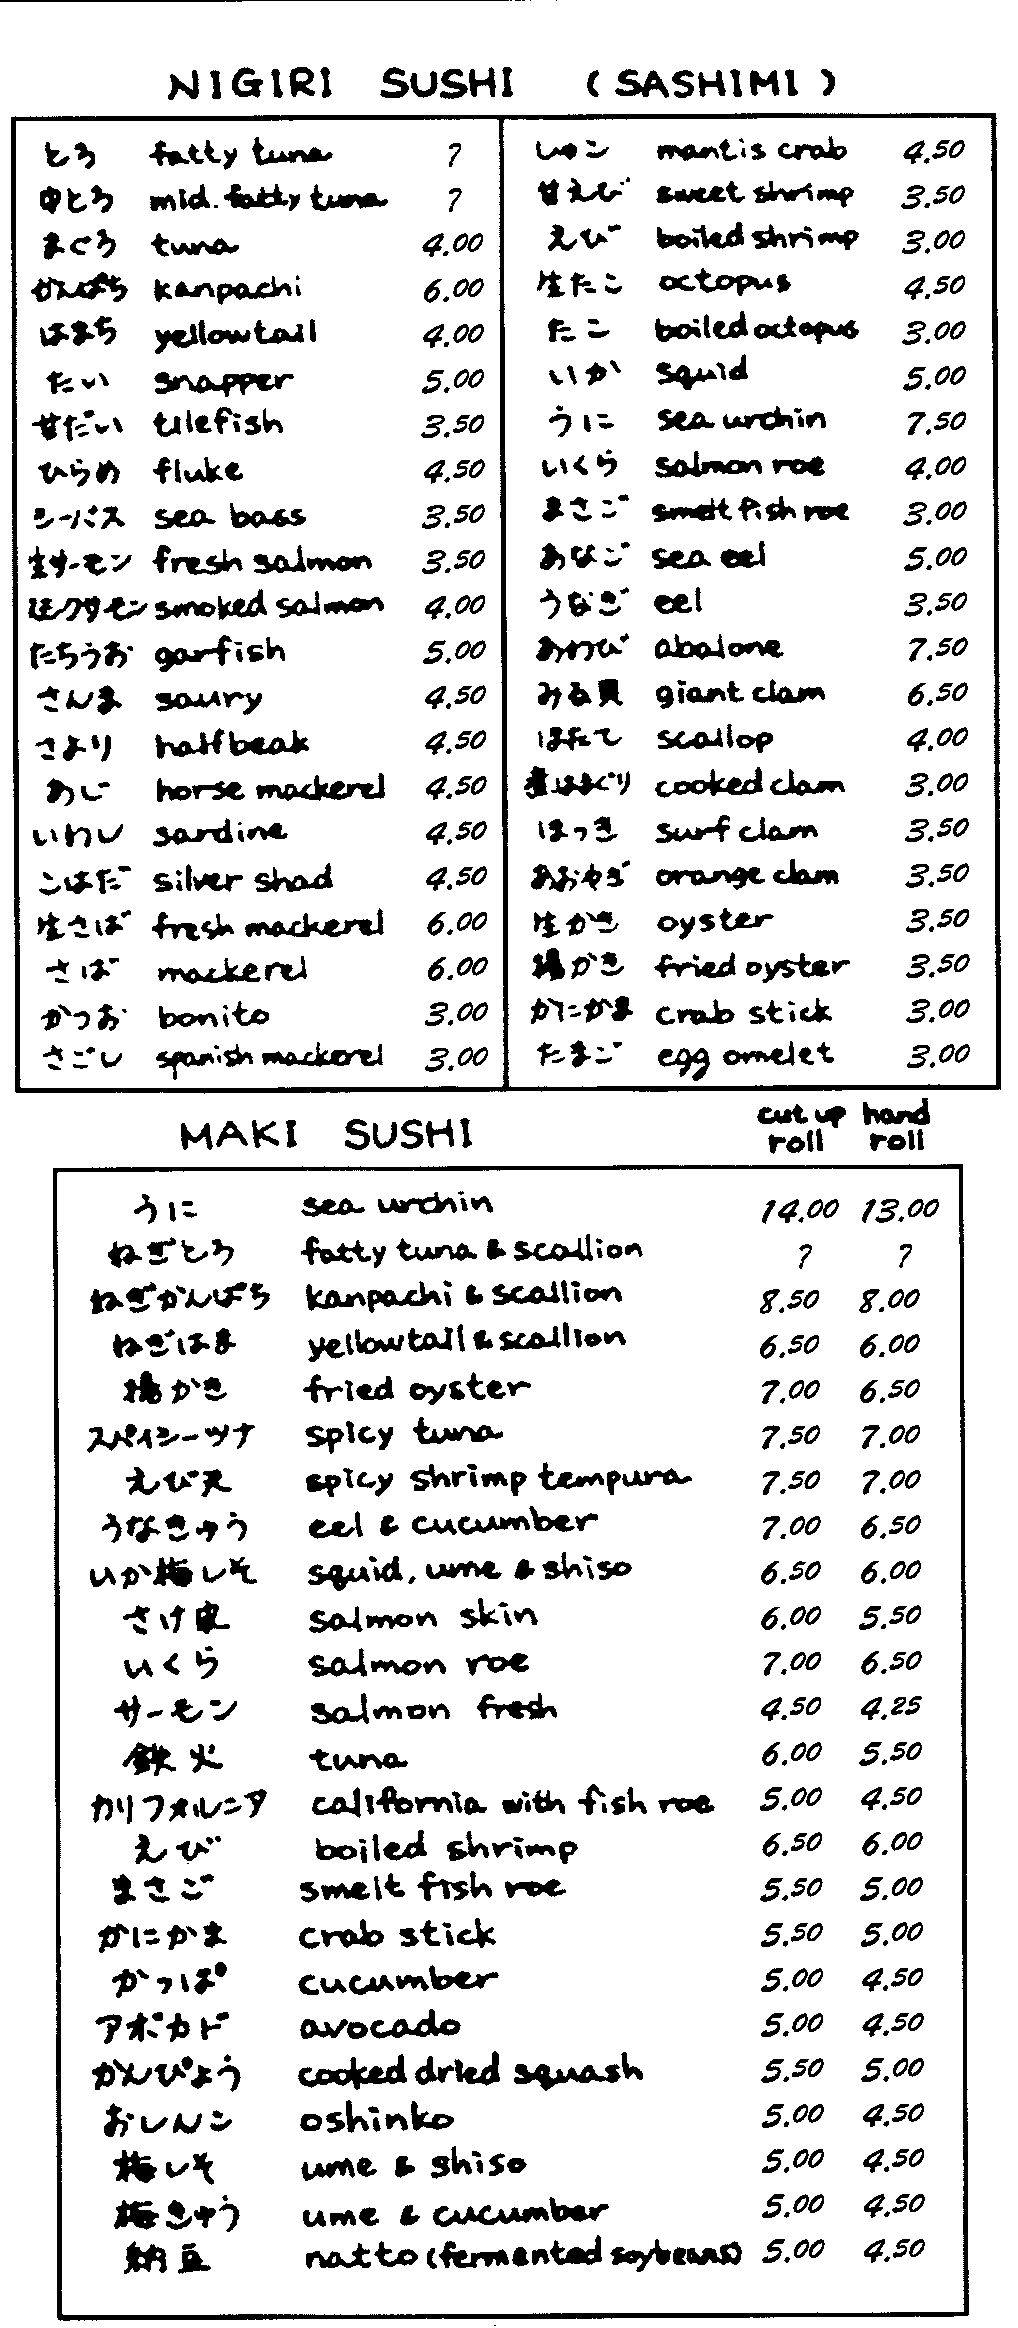 NIGIRI SUSHI (SASHIMI)
とろ fatty tuna ?
中とろ mid. fatty tuna ?
まぐろ tuna 4.00
かんぱち kanpachi 6.00
はまち yellowtail 4.00
たい snapper 5.00
甘だい tilefish 3.50
ひらめ fluke 4.50
シーバス sea bass 3.50
生サーモン fresh salmon 3.50
smoked salmon 4.00
たちうお garfish 5.00
さんま saury 4.50
さより halfbeak 4.50
あじ horse mackerel 4.50
いわし sardine 4.50
こはだ silver shad 4.50
生さば fresh mackerel 6.00
さば mackerel 6.00
かつお bonito 3.00
さごし spanish mackerel 3.00
しゃこ mantis crab 4.50
甘えび sweet shrimp 3.50
えび boiled shrimp 3.00
生たこ octopus 4.50
たこ boiled octopus 3.00
いか squid 5.00
うに sea urchin 7.50
いくら salmon roe 4.00
まさご smelt fish roe 3.00
あなご sea eel 5.00
うなぎ eel 3.50
あわび abalone 7.50
みる貝 giant clam 6.50
ほたて scallop 4.00
煮はまぐり cooked clam 3.00
ほっき surf clam 3.50
あおやぎ orange clam 3.50
生かき oyster 3.50
揚かき fried oyster 3.50
かにかま crab stick 3.00
たまご egg omelet 3.00
MAKI SUSHI
cut up roll hand roll
うに sea urchin 14.00 13.00
ねぎとろ fatty tuna & scallion ? ?
ねぎかんぱち kanpachi & scallion 8.50 8.00
ねぎはま yellowtail & scallion 6.50 6.00
揚かき fried oyster 7.00 6.50
スパイシーツナ spicy tuna 7.50 7.00
えび天 spicy shrimp tempura 7.50 7.00
うなきゅう eel & cucumber 7.00 6.50
いか梅しそ squid, ume & shiso 6.50 6.00
さけ皮 salmon skin 6.00 5.50
いくら salmon roe 7.00 6.50
サーモン salmon fresh 4.50 4.25
鉄火 tuna 6.00 5.50
カリフォルニア california with fish roe 5.00 4.50
えび boiled shrimp 6.50 6.00
まさご smelt fish roe 5.50 5.00
かにかま crab stick 5.50 5.00
かっぱ cucumber 5.00 4.50
アボカド avocado 5.00 4.50
かんぴょう cooked dried squash 5.50 5.00
おしんこ oshinko 5.00 4.50
梅しそ ume & shiso 5.00 4.50
梅きゅう ume & cucumber 5.00 4.50
納豆 natto (fermented soybeans) 5.00 4.50